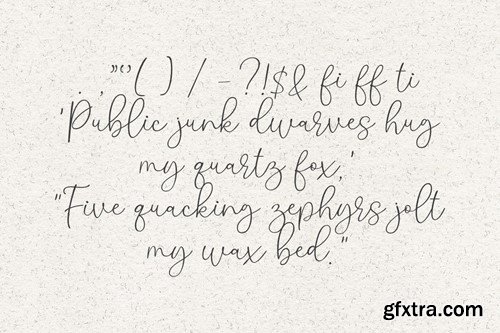 . , "''( ) / - ?!$& fi ff ti
'Public junk dwarves hug
my quartz fox,'
"Five quacking zephyrs jolt
my wax bed."
gfxtra.com